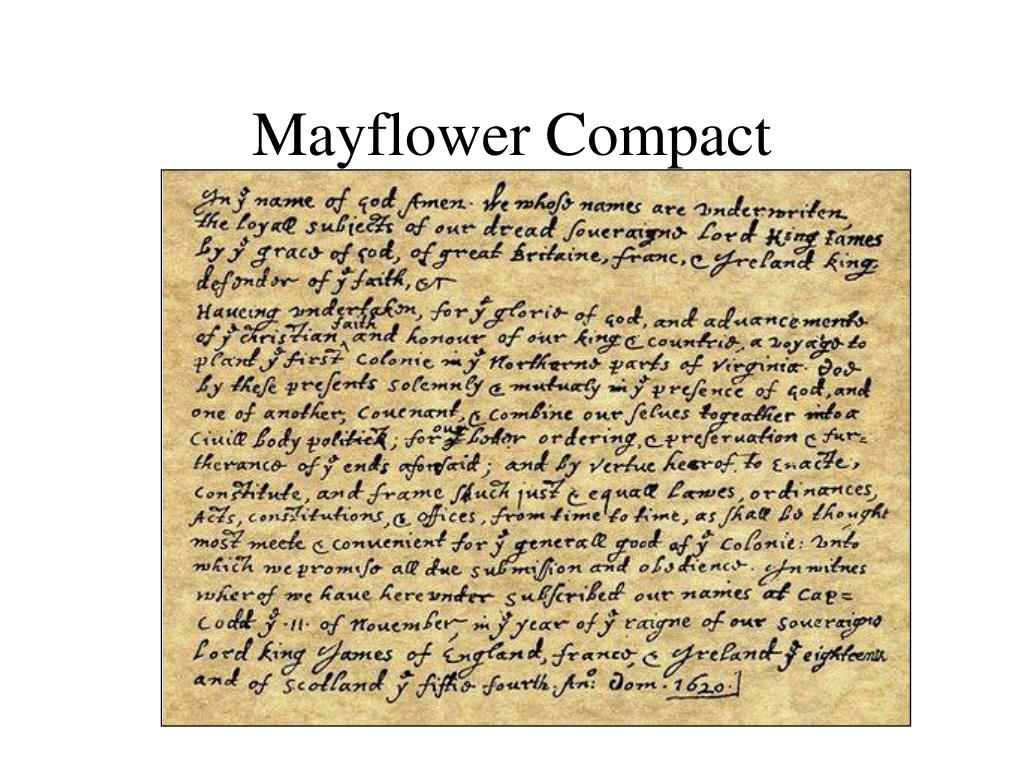 Mayflower Compact
In yͤ name of god Amen. We whose names are vnderwriten,
the loyall subjects of our dread soueraigne Lord King James
by yͤ grace of god, of great Britaine, franc, & Ireland king,
defender of yͤ faith, &c
Haueing vndertaken, for yͤ glorie of god, and advancemente
of yͤ christian faith and honour of our king & countrie, a voyage to
plant yͤ first Colonie in yͤ Northerne parts of Virginia. Doe
by these presents solemnly & mutualy in yͤ presence of god, and
one of another, Couenant, & combine our selues togeather into a
Civill body politick; for our better ordering, & preseruation & fur=
therance of yͤ ends aforesaid; and by vertue hearof, to Enacte,
Constitute, and frame shuch just & equall Lawes, ordinances,
Acts, constitutions, & offices, from time to time, as shall be thought
most meete & convenient for yͤ generall good of yͤ Colonie: vnto
which we promise all due submission and obedience. In witnes
wherof we have hereunder subscribed our names at Cap=
Codd yͤ .11. of November, in yͤ year of yͤ raigne of our soueraigne
Lord king James of England, france, & Ireland yͤ eighteenth
and of Scotland yͤ fiftie fourth. An: Dom. 1620.]